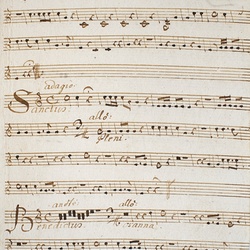 adagio
Sanctus
allo:
Pleni
andte allo:
Benedictus osanna